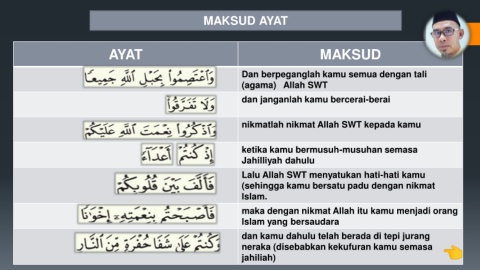 MAKSUD AYAT
AYAT
MAKSUD
وَاعْتَصِمُوا بِحَبْلِ اللَّهِ جَمِيعًا
Dan berpeganglah kamu semua dengan tali
(agama) Allah SWT
وَلَا تَفَرَّقُوا
dan janganlah kamu bercerai-berai
وَاذْكُرُوا نِعْمَتَ اللَّهِ عَلَيْكُمْ
nikmatlah nikmat Allah SWT kepada kamu
إِذْ كُنتُمْ أَعْدَاءً
ketika kamu bermusuh-musuhan semasa
Jahilliyah dahulu
فَأَلَّفَ بَيْنَ قُلُوبِكُمْ
Lalu Allah SWT menyatukan hati-hati kamu
(sehingga kamu bersatu padu dengan nikmat
Islam.
فَأَصْبَحْتُم بِنِعْمَتِهِ إِخْوَانًا
maka dengan nikmat Allah itu kamu menjadi orang
Islam yang bersaudara
وَكُنتُمْ عَلَىٰ شَفَا حُفْرَةٍ مِّنَ النَّارِ
dan kamu dahulu telah berada di tepi jurang
neraka (disebabkan kekufuran kamu semasa
jahiliah)